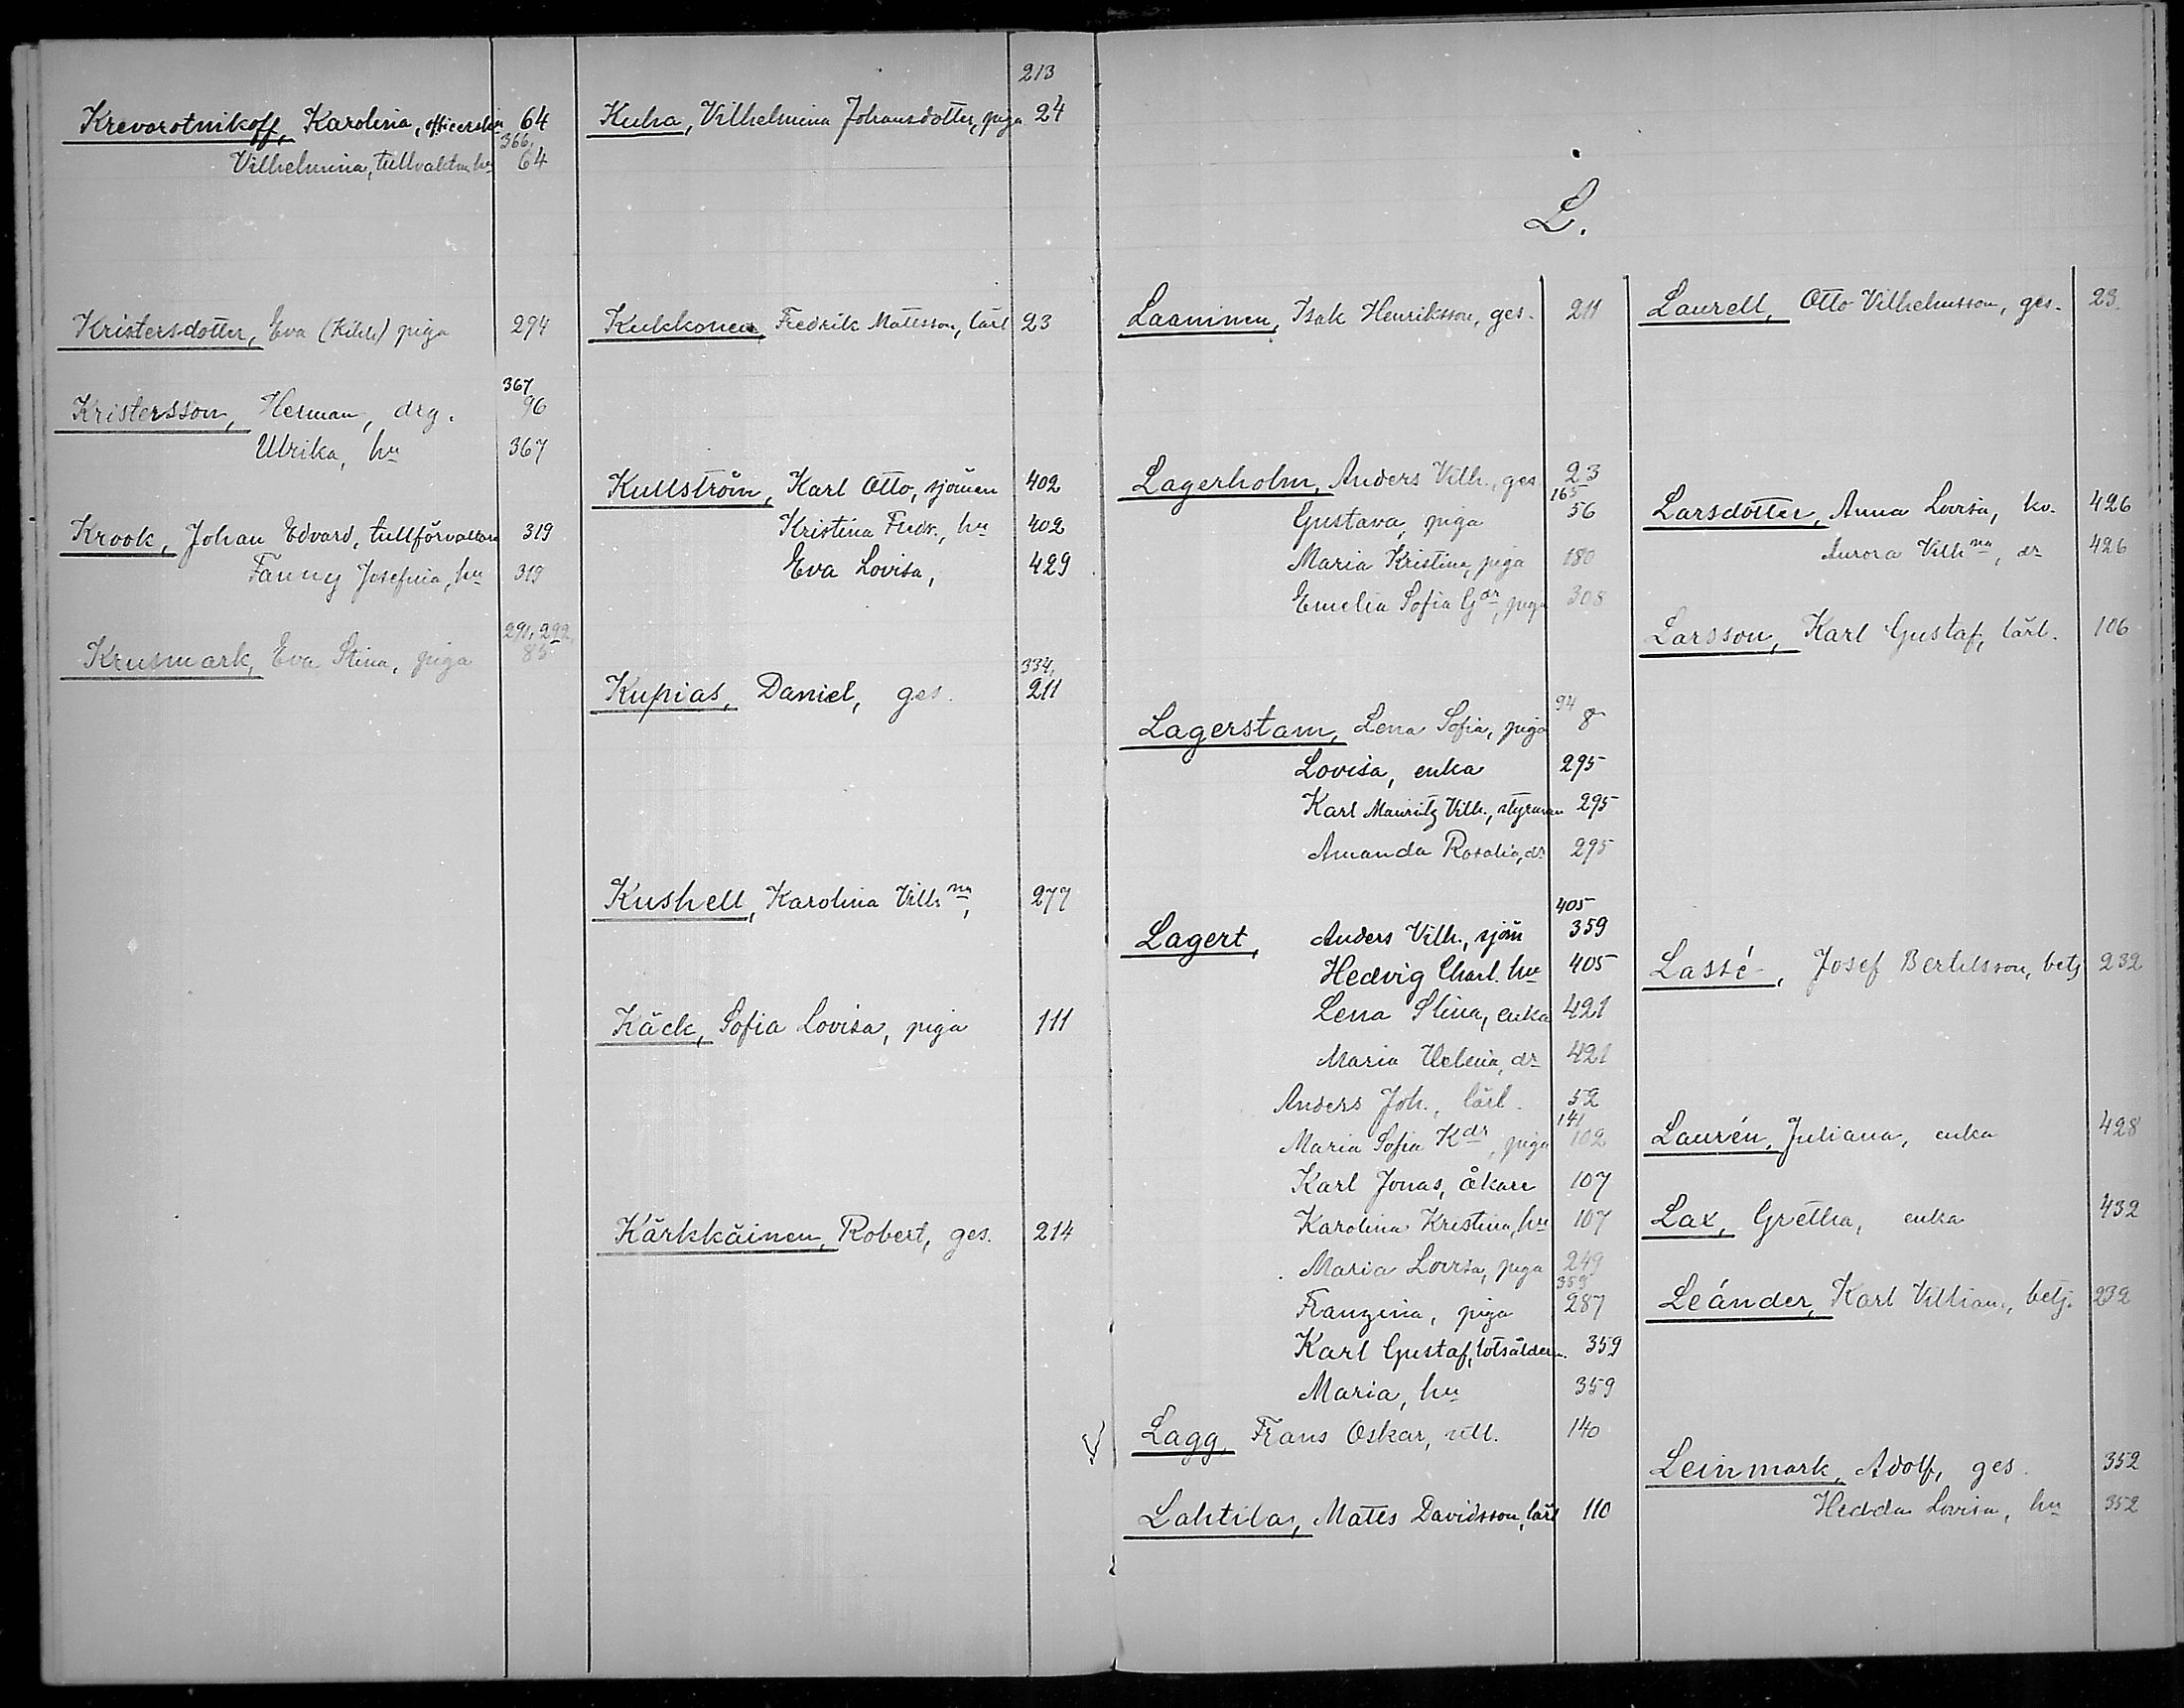 Krevorotnikoff, Karolina, 64
366,
Vilhelmina, tullvaktm. hu 64
Kristersdotter, Eva (Kihl) piga 294
367
Kristersson, Herman, drg. 96
Ulrika, hu 367
Krook, Johan Edvard, tullförvaltare 319
Fanny Josefina, hu 319
291, 292,
Krusmark, Eva Stina, piga 85
213
Kuha, Vilhelmina Johansdotter, piga 24
Kukkonen, Fredrik Mattsson, lärl 23
Kullström, Karl Otto, sjöman 402
Kristina Fredr., hu 402
Eva Lovisa, 429
334,
Kupias, Daniel, ges. 211
Kushell, Karolina Vilhna, 277
Käck, Sofia Lovisa, piga 111
Kärkkäinen, Robert, ges. 214
L.
Laaninen, Isak Henriksson, ges. 211
Lagerholm, Anders Vilh., ges 23
165
Gustava, piga 56
Maria Kristina, piga 180
Emelia Sofia Gdr, piga 308
94
Lagerstam, Lena Sofia, piga 8
Lovisa, enka 295
Karl Mauritz Vilh., styrman 295
Amanda Rosalia, dr 295
405
Lagert, Anders Vilh., sjöm 359
Hedvig Charl. hu 405
Lena Stina, enka 421
Maria Helena, dr 421
Anders Joh., lärl. 52
141
Maria Sofia Kdr, piga 102
Karl Jonas, åkare 107
Karolina Kristina, hu 107
Maria Lovisa, piga 249
359
Franzina, piga 287
Karl Gustaf, lotsålderm. 359
Maria, hu 359
Lagg, Frans Oskar, 140
Lahtila, Matts Davidsson, lärl 110
Laurell, Otto Vilhelmsson, ges. 23
Larsdotter, Anna Lovisa, kv. 426
Aurora Vilhna, dr 426
Larsson, Karl Gustaf, lärl. 106
Lassé, Josef Bertilsson, betj 232
Laurén, Juliana, enka 428
Lax, Gretha, enka 432
Leánder, Karl Villiam, betj. 232
Leinmark, Adolf, ges. 352
Hedda Lovisa, hu 352